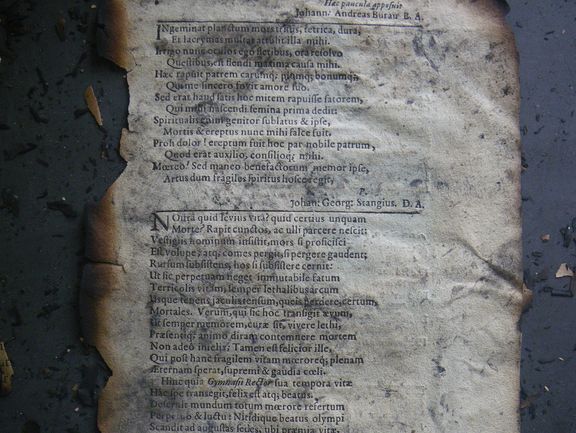 Hæc paucula apposuit
Johann: Andreas Buraw B. A.
INgeminat planctum mors tristis, tetrica, dura,
Et lacrymas multas attulit illa mihi.
Irrigo nunc oculos ego fletibus, ora resolvo
Questibus, est flendi maxima causa mihi.
Hæc rapuit patrem carumq; piumq; bonumq;
Qui me sincero fovit amore suo.
Sed erat haud satis hoc mitem rapuisse satorem,
Qui mihi nascendi semina prima dedit:
Spiritualis cum genitor sublatus & ipse,
Mortis & ereptus nunc mihi falce fuit.
Proh dolor! ereptum fuit hoc par nobile patrum,
Quod erat auxilio, consilioq; mihi.
Mœreo! Sed maneo benefactorum memor ipse,
Artus dum fragiles spiritus hosce regit,
P.
Johan: Georg: Stangius, D. A.
NOstra quid levius vita? quid certius unquam
Morte? Rapit cunctos, ac ulli parcere nescit:
Vestigiis hominum insistit, mors si proficisci
Est volupe, atq; comes pergit, si pergere gaudent;
Rursum subsistens, hos si subsistere cernit:
Ut sic perpetuam heget immutabile fatum
Terricolis vitam, semper lethalibus arcum
Usque tenens jaculis tensum, queis perdere certum,
Mortales. Verum, qui sic hoc transigit ævum,
Ut semper memorem, curæ sit, vivere lethi,
Præsentiq; animo diram contemnere mortem
Non adeo infelix: Tamen est felicior ille,
Qui post hanc fragilem vitam mœroreq; plenam
Æternam sperat, supremi & gaudia cœli.
Hinc quia Gymnasii Rector sua tempora vitæ
Hac spe transegit, felix est atq; beatus.
Deseruit mundum totum mœrore refertum
Perpetuo & luctu: Nitidique beatus olympi
Scandit ad augustas sedes, ubi præmia vitæ